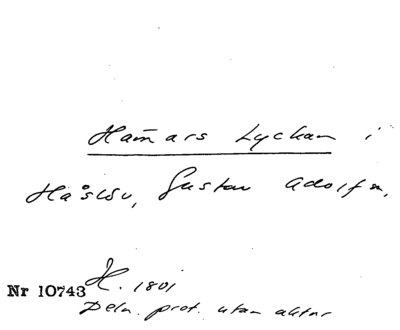 Ham̄ars Lyckan i
Håslöv, Gustav Adolf sn,
Nr 10743 H. 1801
Deln. prot. utan aktnr